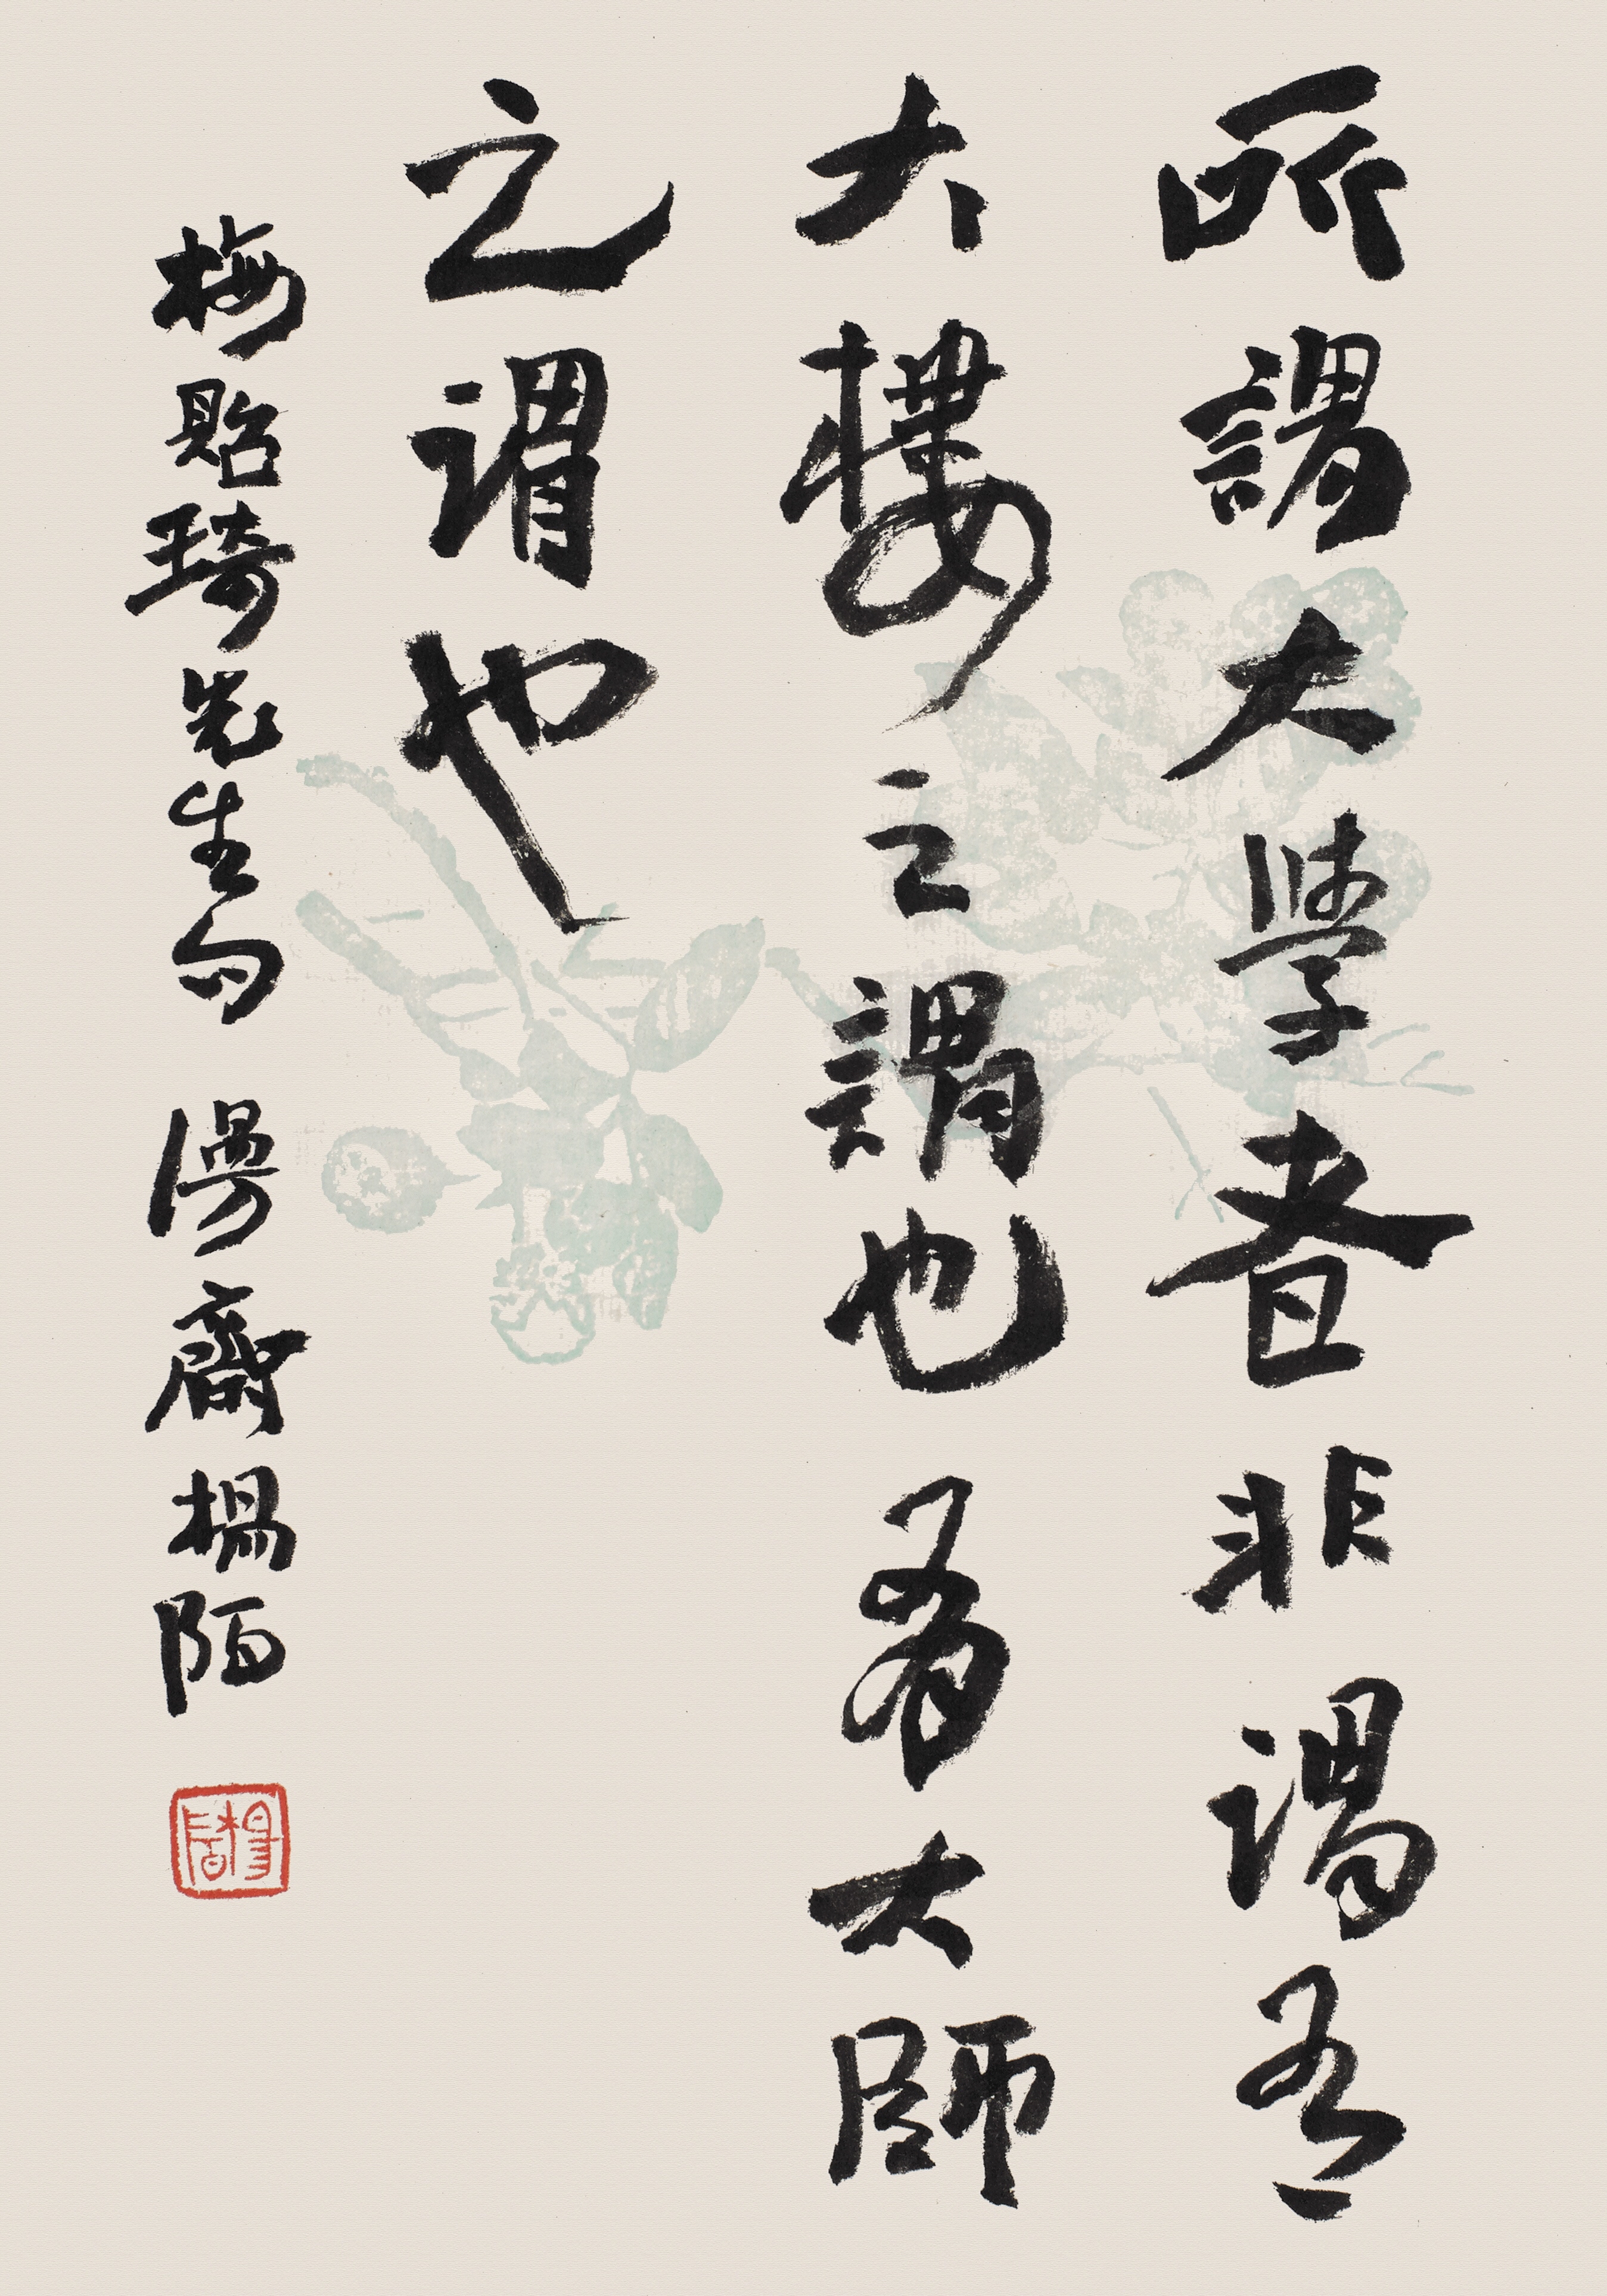 所謂大學者非謂有
大樓之謂也有大師
之謂也
梅貽琦先生句 漫齋楊陌
楊陌